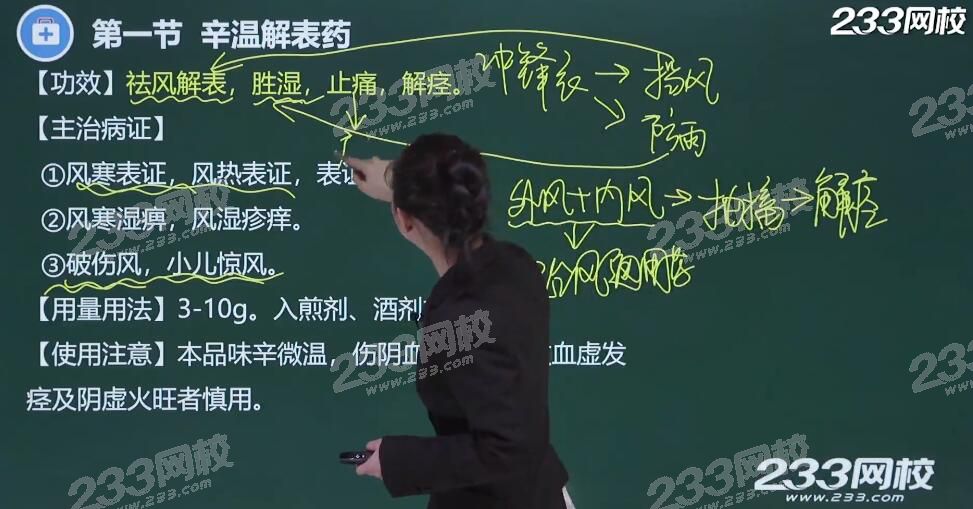 第一节 辛温解表药
233网校
【功效】祛风解表，胜湿，止痛，解痉。
冲锋衣→挡风
防雨
【主治病证】
①风寒表证，风热表证，表证
外风+内风→抽搐→解痉
②风寒湿痹，风湿疹痒。
③破伤风，小儿惊风。
治风通用药
【用量用法】3-10g。入煎剂、酒剂
【使用注意】本品味辛微温，伤阴血 血虚发
痉及阴虚火旺者慎用。
233网校
www.233.com